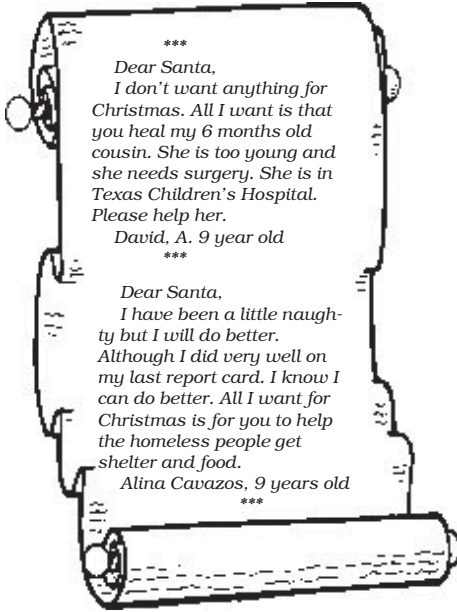 ***
Dear Santa,
I don't want anything for
Christmas. All I want is that
you heal my 6 months old
cousin. She is too young and
she needs surgery. She is in
Texas Children's Hospital.
Please help her.
David, A. 9 year old
***
Dear Santa,
I have been a little naugh-
ty but I will do better.
Although I did very well on
my last report card. I know I
can do better. All I want for
Christmas is for you to help
the homeless people get
shelter and food.
Alina Cavazos, 9 years old
***